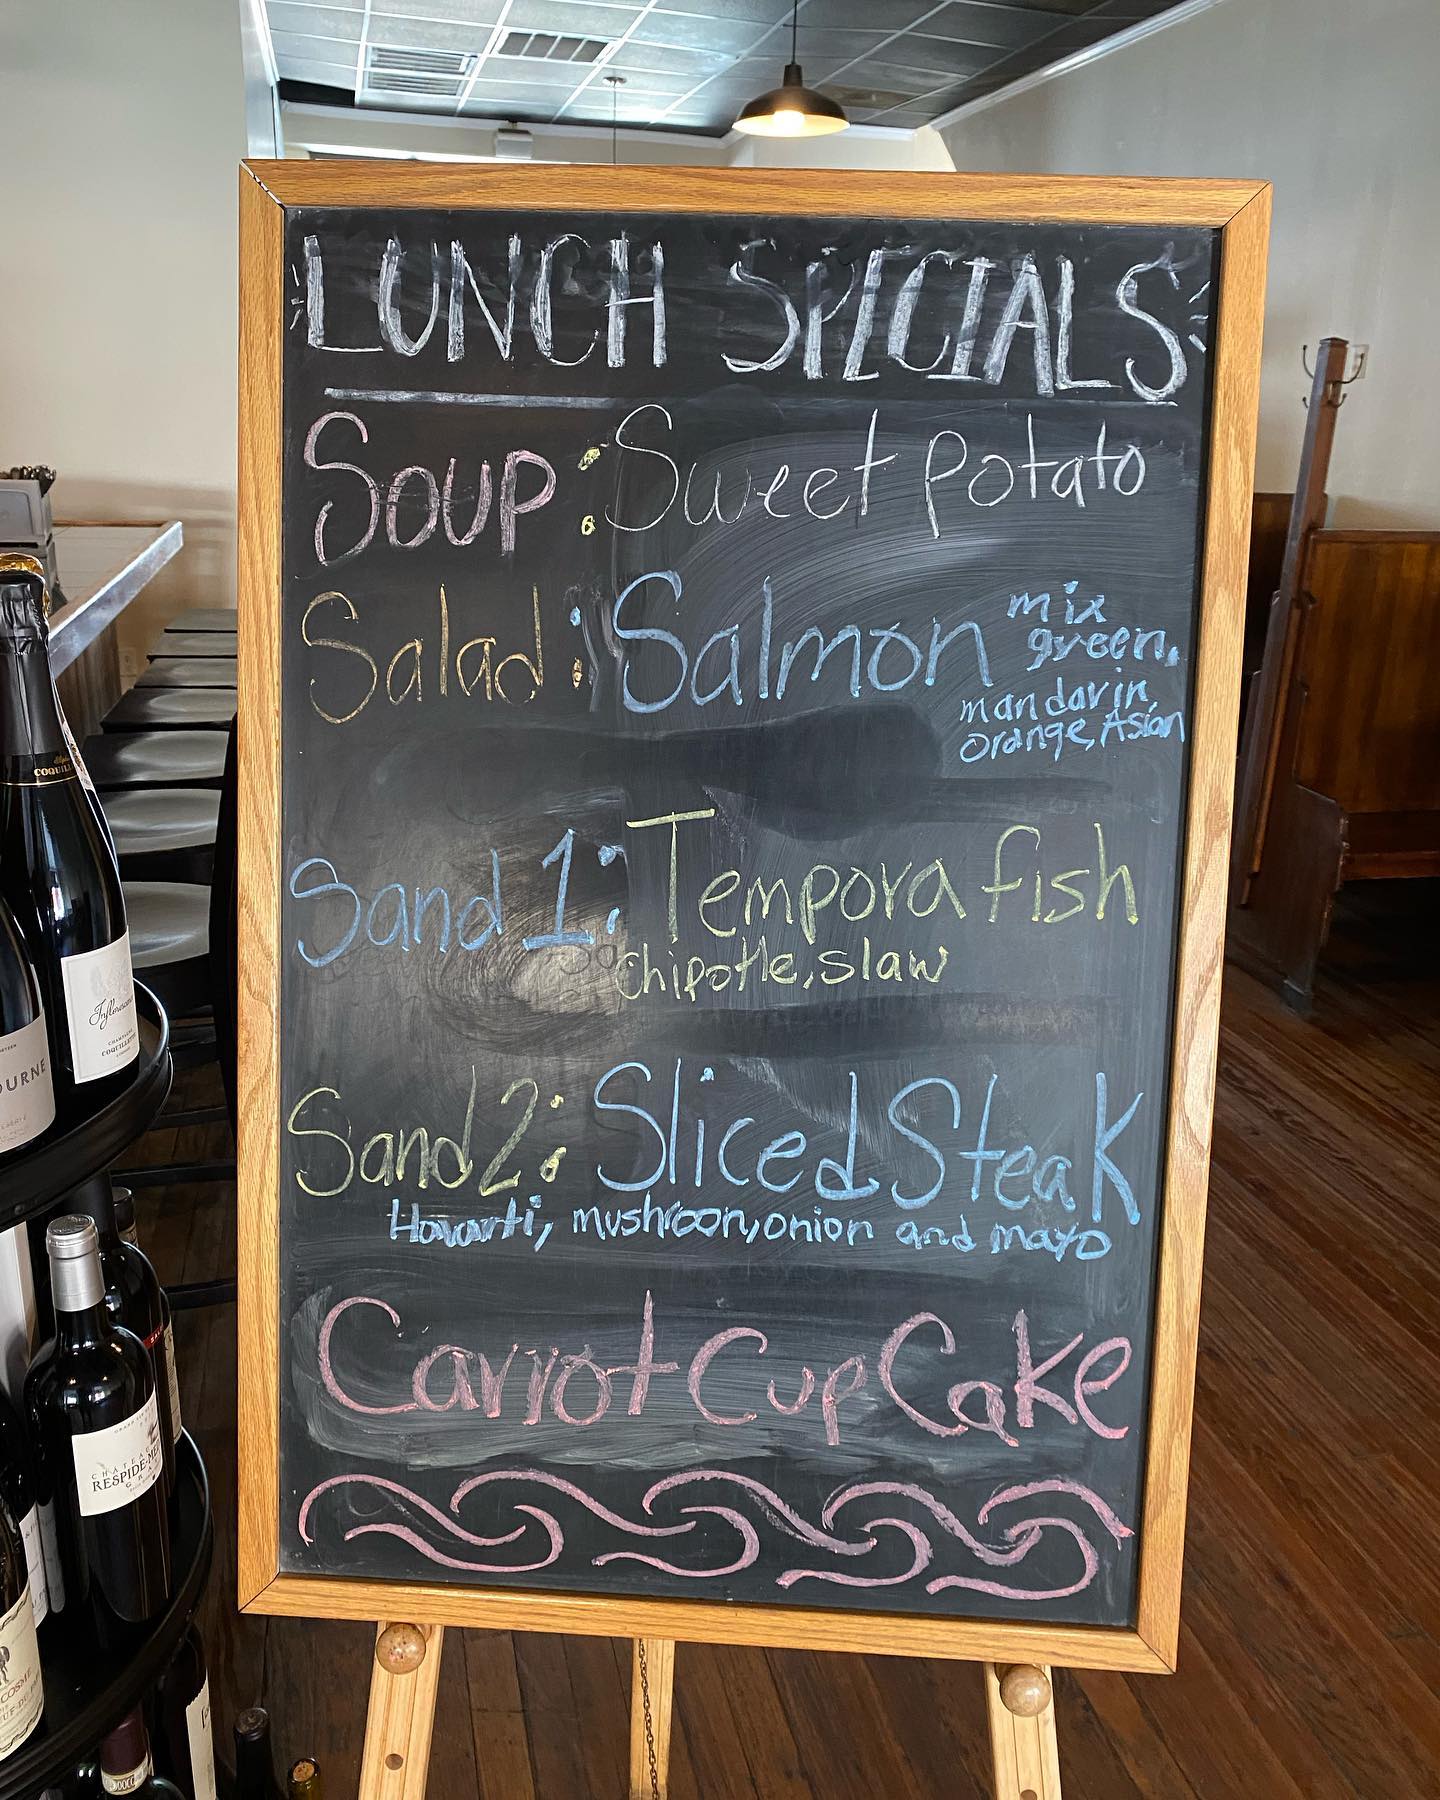 LUNCH SPECIALS
Soup: Sweet potato
Salad: Salmon mix
green,
mandarin
orange, Asian
Sand 1: Tempora fish
chipotle, slaw
Sand 2: Sliced Steak
Havarti, mushroom, onion and mayo
Carrot CupCake
COQUILL
Inflorescence
CHAMPAGNE
COQUILLETTE
OURNE
CHATEAU
RESPIDE-ME
GRA
COSME